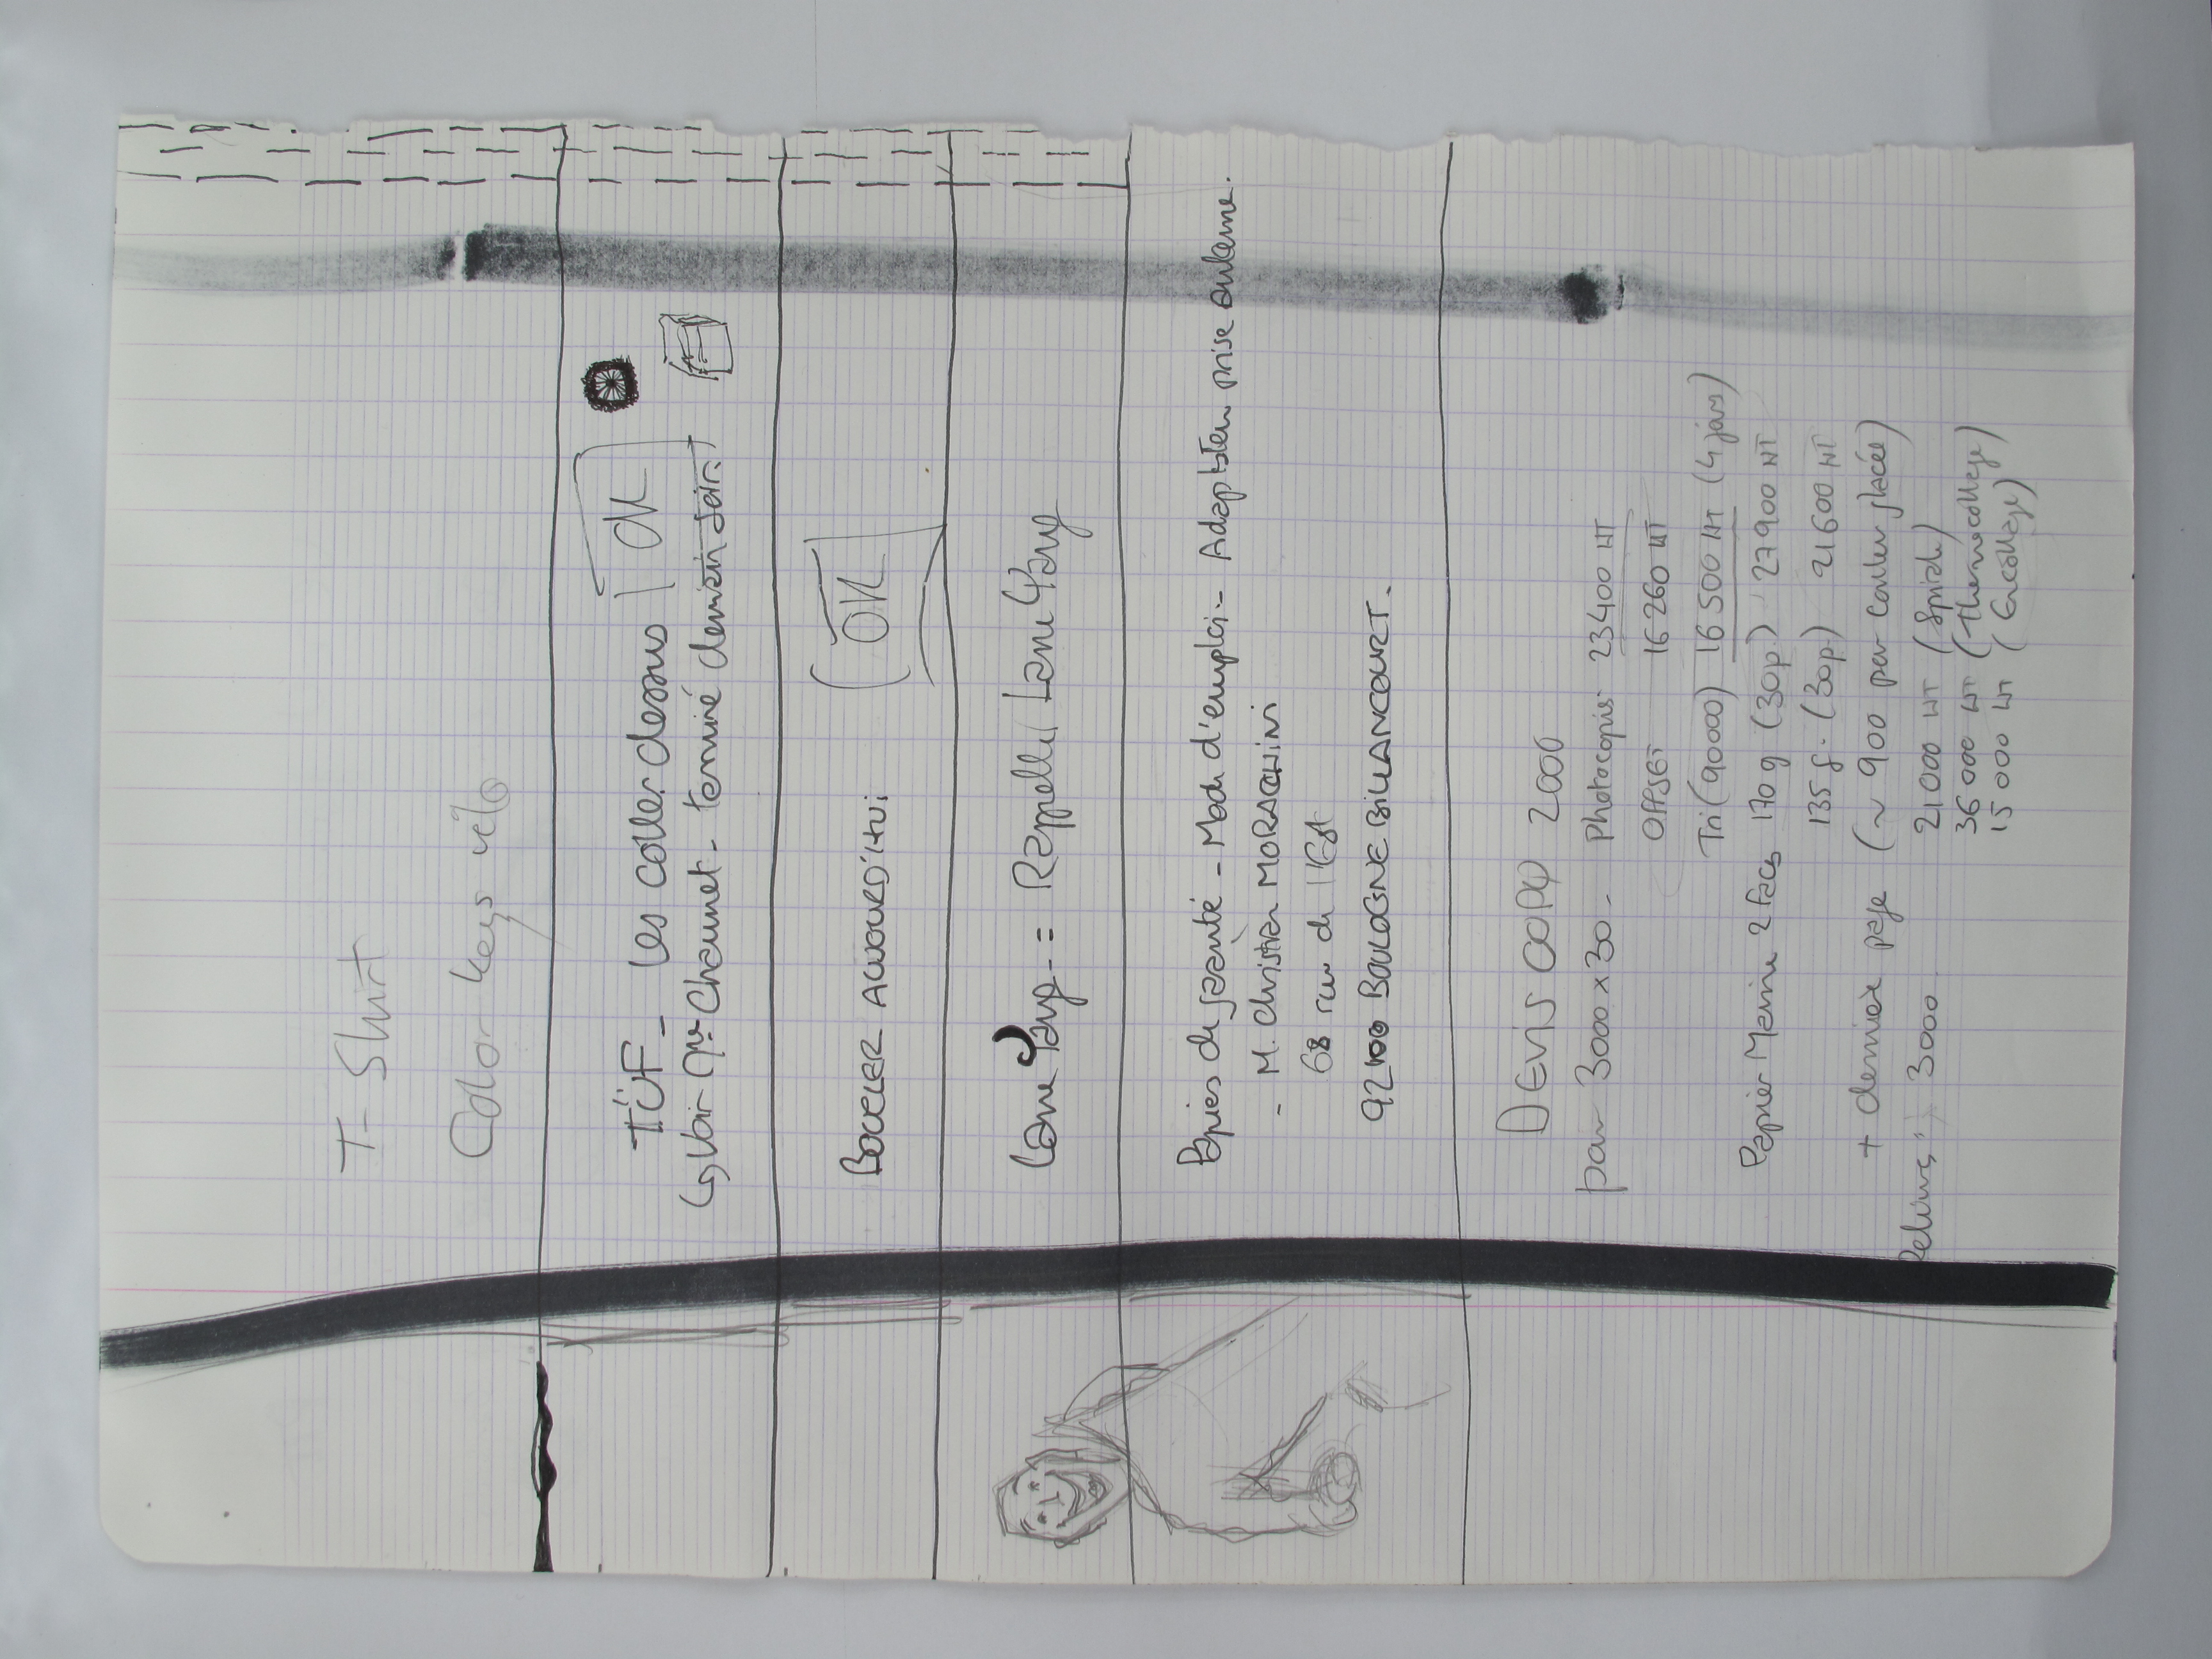 T-Shirt
Color keys vélo
TÜF - Les coller dessus OK
Voir Mr Chaumet - terminé demain soir
BOUCLER AUJOURD'HUI OK
Rappeller Lamy
Papiers de garantie - Mode d'emploi - Adaptateur prise antenne.
- M. Christian MORACCHINI
68 rue de l'Est
92100 BOULOGNE BILLANCOURT.
DEVIS COPY 2000
pour 3000 x 30 - Photocopies 23400 HT
OFFSET 16260 HT
Tri (90000) 16500 HT (4 jours)
Papier Marine 2 faces 170 g (30p.) 27900 HT
135 g. (30p.) 21600 HT
+ dernière page (~ 900 par couleur glacée)
3000 21000 HT (Spirale)
36000 HT (thermocollage)
15000 HT (Encollage)